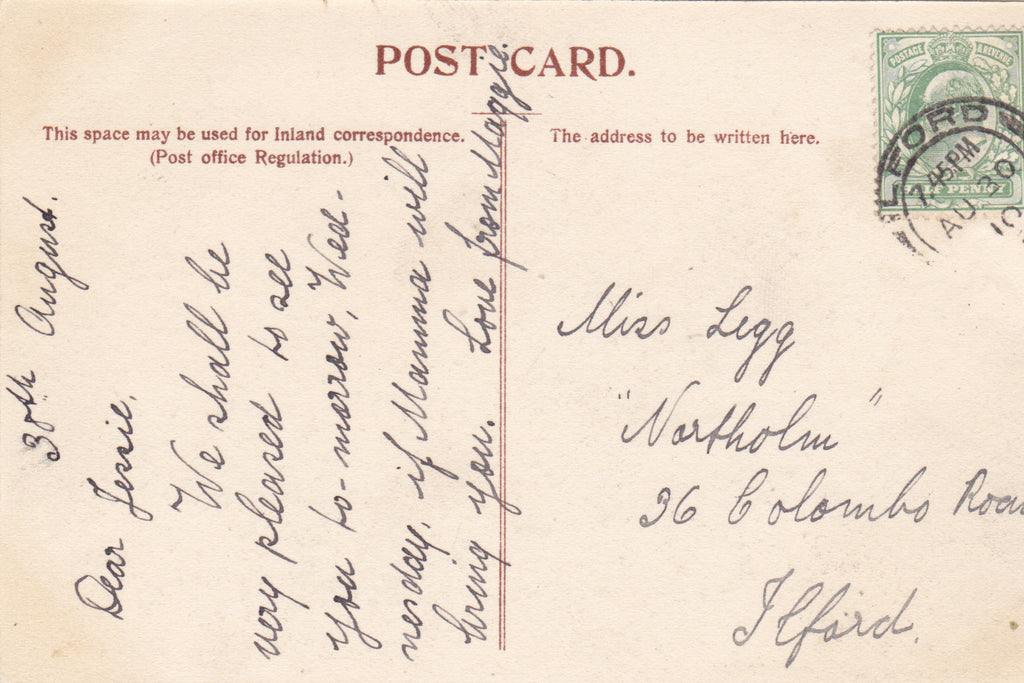 POST CARD.
This space may be used for Inland correspondence.
(Post office Regulation.)
The address to be written here.
POSTAGE & REVENUE
HALF PENNY
ILFORD
7.45PM
AU 30
10
30th August.
Dear Jessie,
We shall be
very pleased to see
you to-morrow, Wed-
nesday, if Mamma will
bring you. Love from Maggie.
Miss Legg
"Northolm"
36 Colombo Road
Ilford.